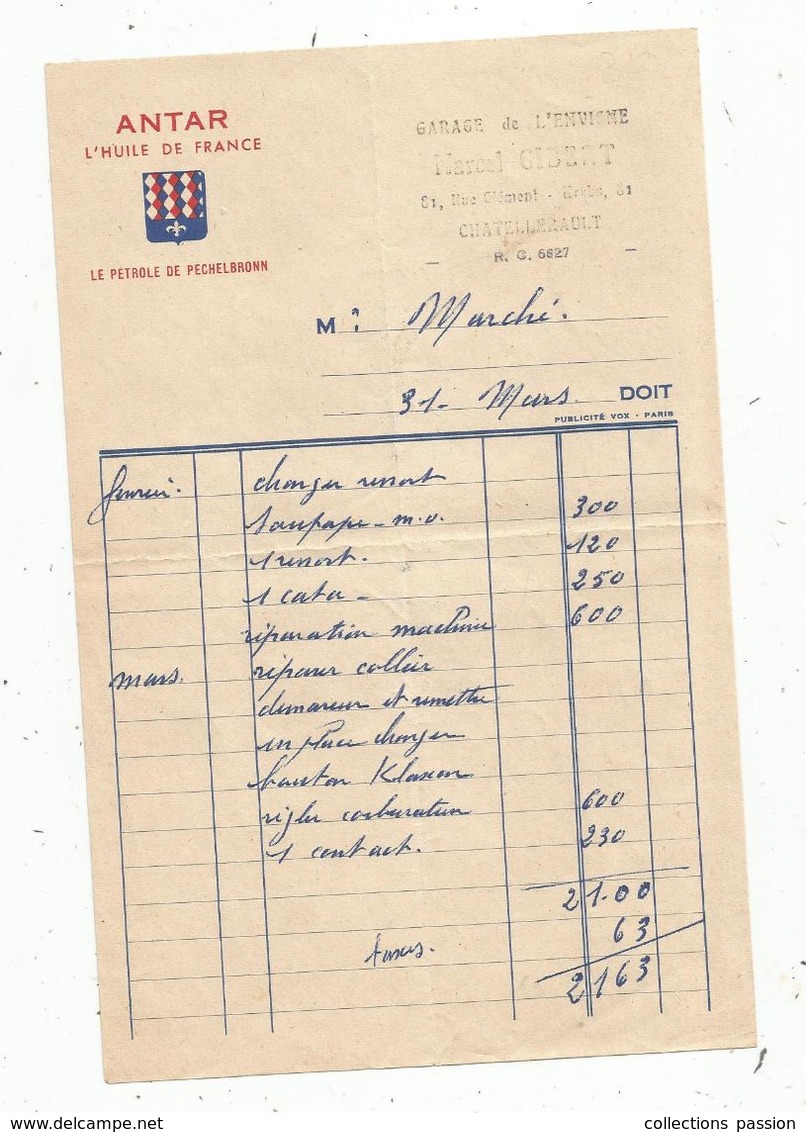 ANTAR
L'HUILE DE FRANCE
LE PÉTROLE DE PECHELBRONN
GARAGE de L'ENVIGNE
Marcel GIBERT
81, Rue Clément - Krebs, 81
CHATELLERAULT
— R. C. 6627 —
M : Marché.
31 - Mars. DOIT
PUBLICITÉ VOX - PARIS
changer ressort
soupape - m.o. 300
1 ressort. 120
1 cata - 250
réparation machine 600
mars. réparer collier
demareur et remettre
en place changer
bouton Klaxon
régler carburation 600
1 contact. 230
21.00
taxes. 63
2163
collections passion